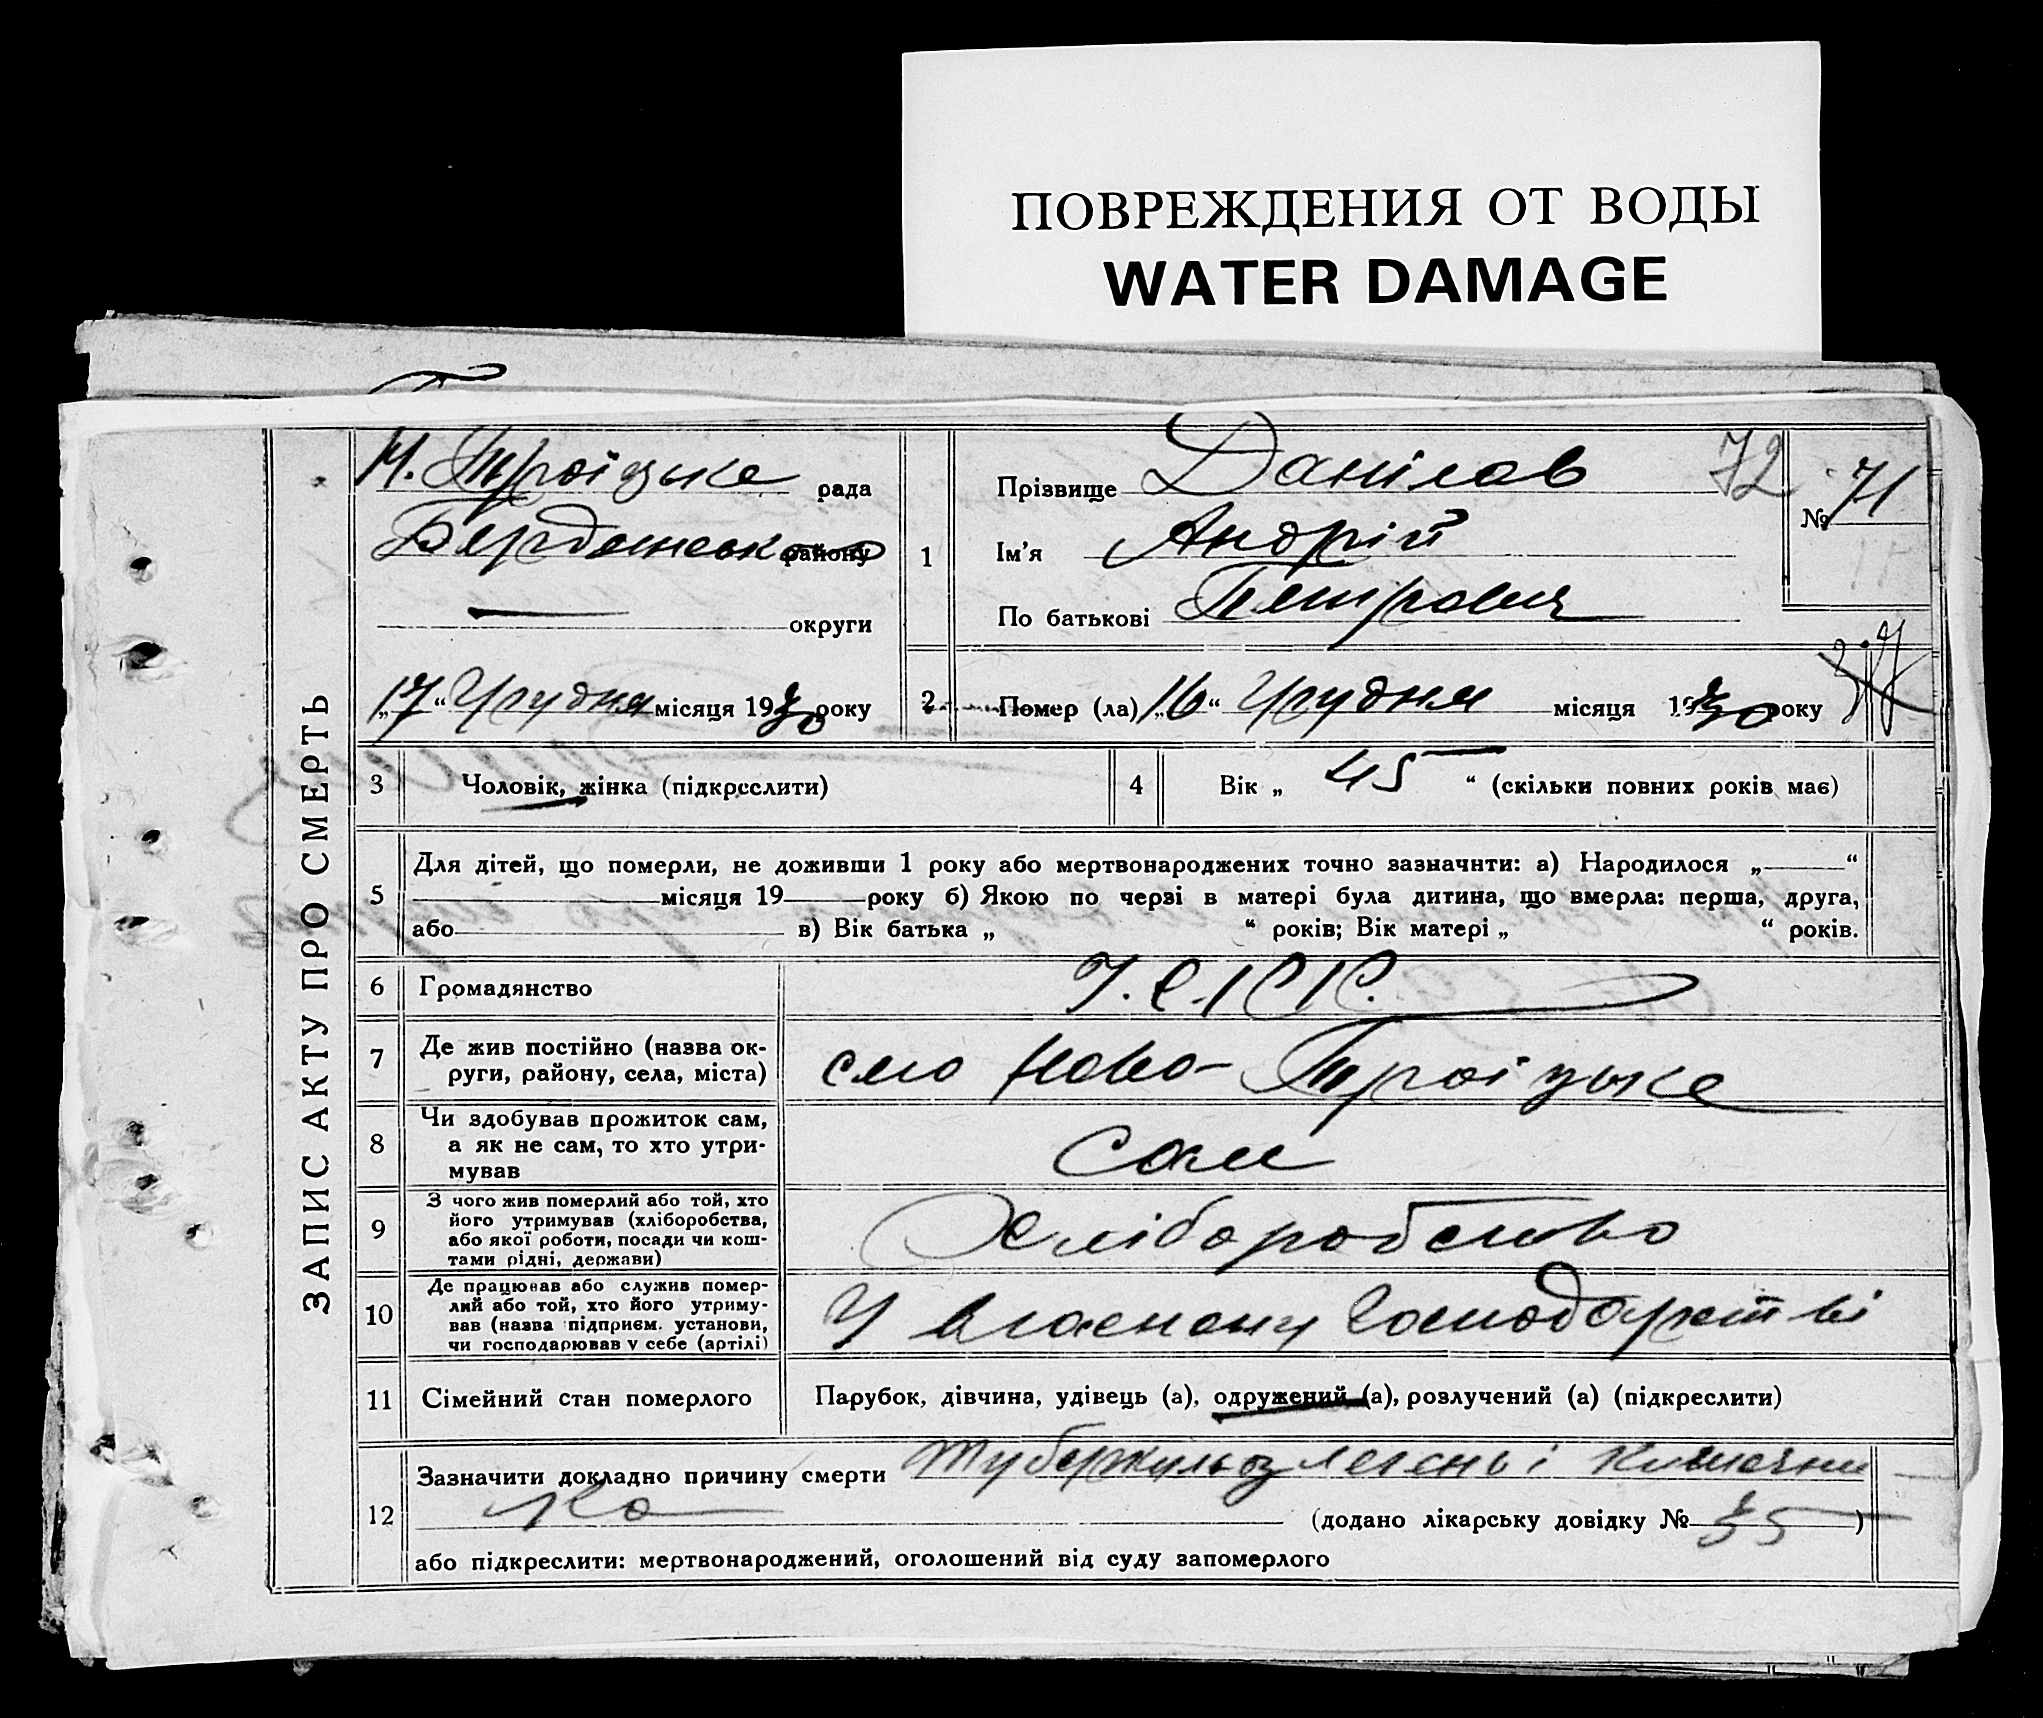 ПОВРЕЖДЕНИЯ ОТ ВОДЫ
WATER DAMAGE
ЗАПИС АКТУ ПРО СМЕРТЬ
Н. Троїцьке рада
Бердянськ району
округи
„17“ Грудня місяця 1930 року
1
Прізвище Данілов
Ім’я Андрій
По батькові Петрович
72
№ 71
2 Помер (ла) „16“ Грудня місяця 1930 року
3 Чоловік, жінка (підкреслити)
4 Вік „ 45 “ (скільки повних років має)
5 Для дітей, що померли, не доживши 1 року або мертвонароджених точно зазначити: а) Народилося „ “
місяця 19 року б) Якою по черзі в матері була дитина, що вмерла: перша, друга,
або в) Вік батька „ “ років; Вік матері „ “ років.
6 Громадянство У.С.Р.Р.
7 Де жив постійно (назва ок-
руги, району, села, міста)
село Ново-Троїцьке
8 Чи здобував прожиток сам,
а як не сам, то хто утри-
мував
Сам
9 З чого жив померлий або той, хто
його утримував (хліборобства,
або якої роботи, посади чи кош-
тами рідні, держави)
Хліборобство
10 Де працював або служив помер-
лий або той, хто його утриму-
вав (назва підприєм. установи,
чи господарював у себе (артілі)
У власному Господарстві
11 Сімейний стан померлого Парубок, дівчина, удівець (а), одружений (а), розлучений (а) (підкреслити)
12 Зазначити докладно причину смерти Туберкульоз легень і Кишечни
ка (додано лікарську довідку № 35)
або підкреслити: мертвонароджений, оголошений від суду запомерлого